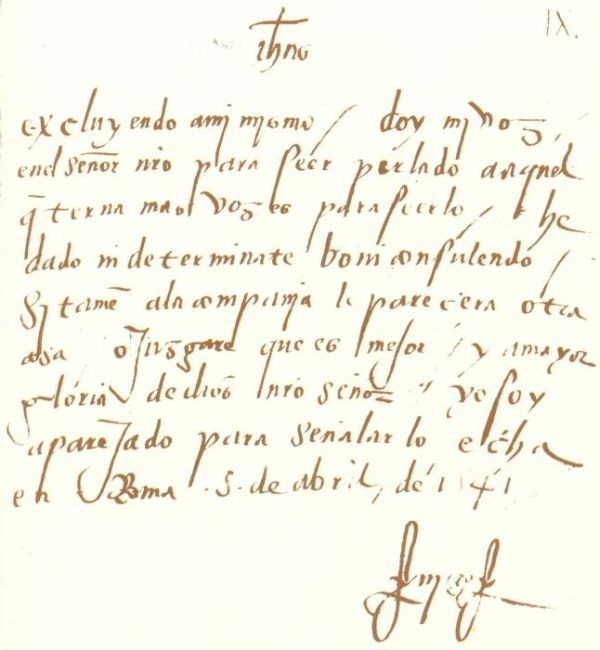 IX.
ihus
excluyendo a mi mismo / doy mi voz,
en el señor nro para seer perlado a aquel
q̃ terna mas vozes para serlo / he
dado indeterminate boni consulendo /
si tamẽ a la compania le parecera otra
cosa o juzgare que es mejor / y a mayor
gloria de dios nro señor / yo soy
aparejado para señalarlo echa
en Roma .5. de abril, de 1541